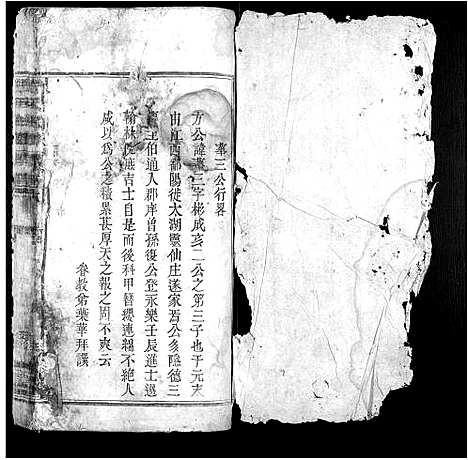 峯三公行畧
方公諱峯三字彬成亥二公之第三子也于元末
由江西鄱陽徙太湖靈仙庄遂家焉公多隱德三
世伯通入郡庠曾孫復公登永樂壬辰進士選
翰林院庶吉士自是而後科甲簪纓連綿不絕人
咸以為公之積累甚厚天之報之固不爽云
眷教弟葉華拜譔